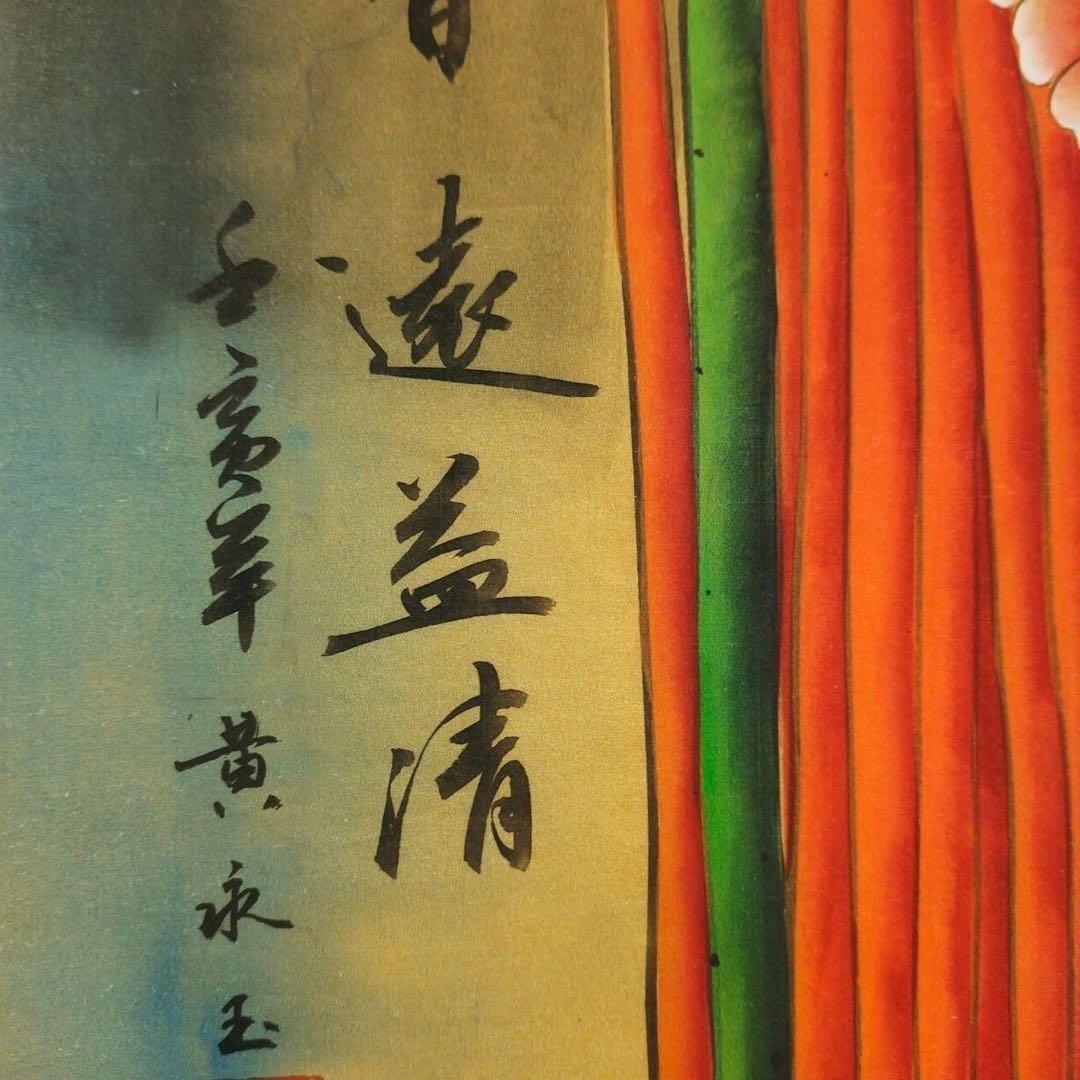 香遠益清
壬寅年 黄永玉